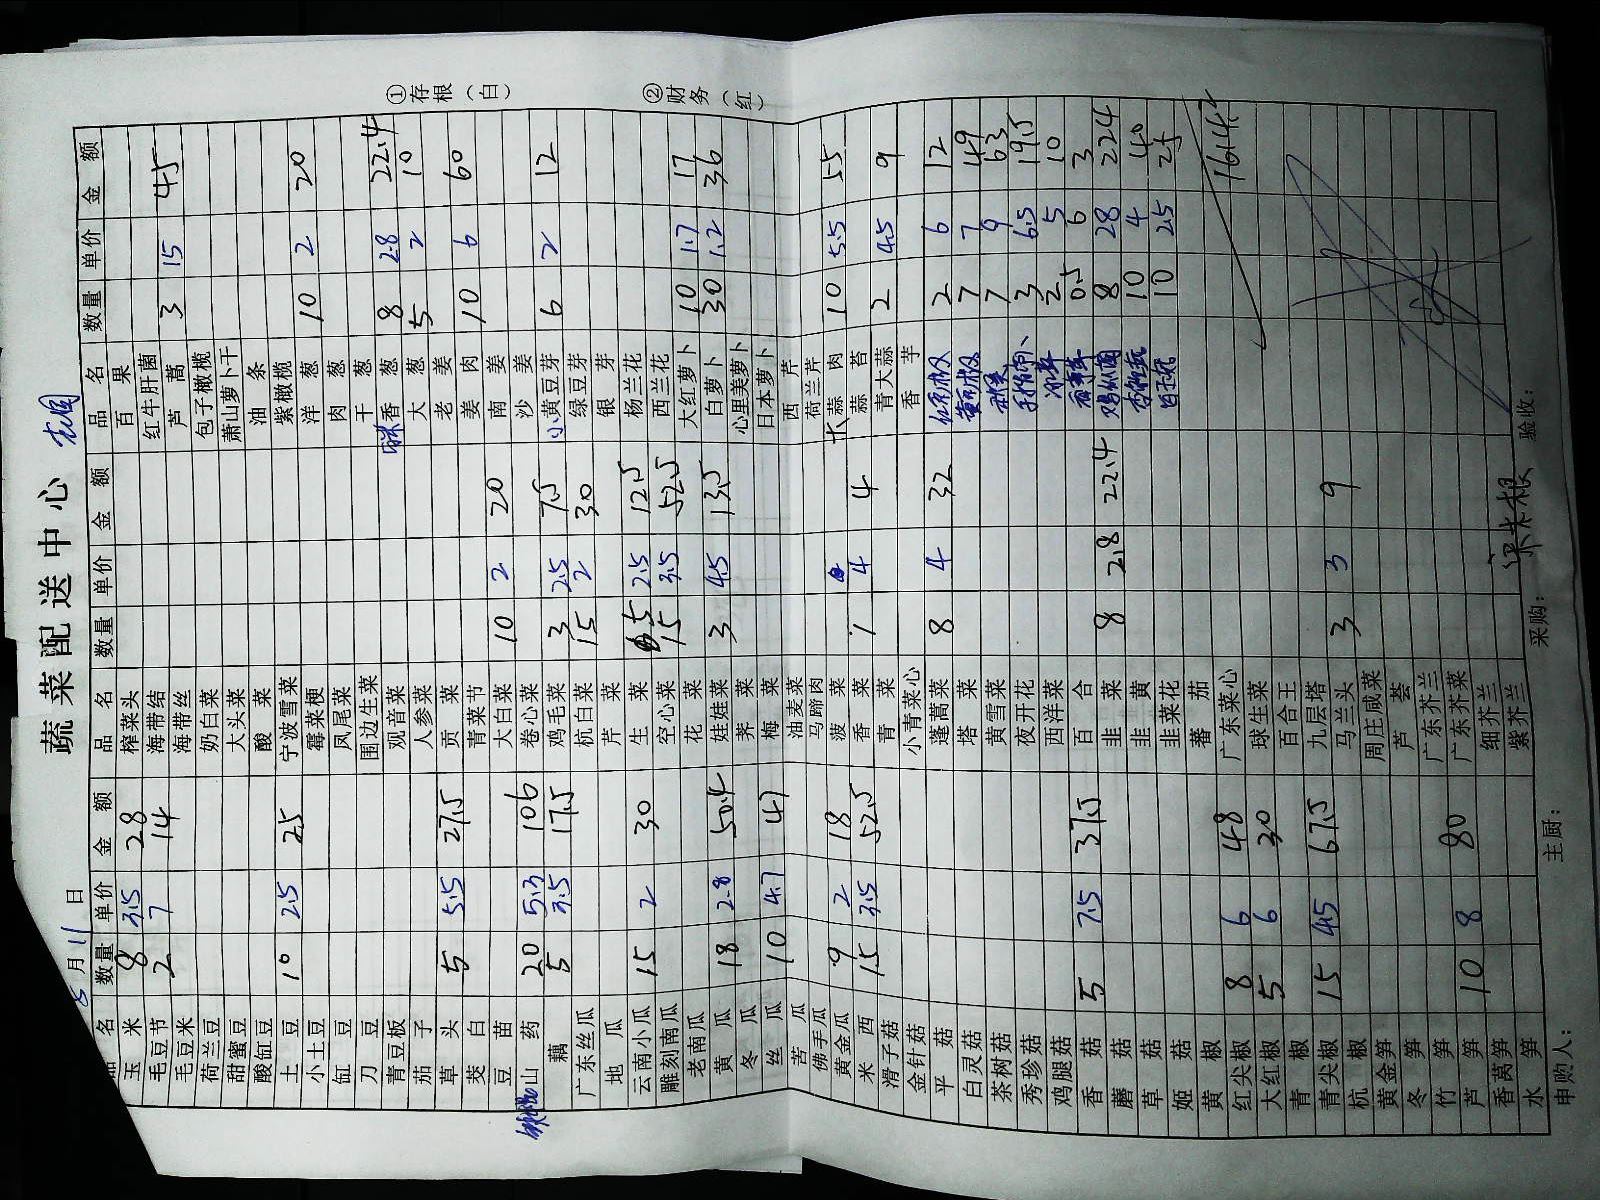 蔬菜配送中心
5月11日
品名 数量 单价 金额 品名 数量 单价 金额 品名 数量 单价 金额
玉米 8 3.5 28 榨菜头 百果
毛豆节 2 7 14 海带结 红牛肝菌
毛豆米 海带丝 芦蒿 3 15 45
荷兰豆 奶白菜 包子橄榄
甜蜜豆 大头菜 萧山萝卜干
酸缸豆 酸菜 油条
土豆 10 2.5 25 宁波雪菜 紫橄榄
小土豆 霉菜梗 洋葱 10 2 20
缸豆 凤尾菜 肉葱
刀豆 围边生菜 干葱
青豆板 观音菜 香葱 8 2.8 22.4
茄子 人参菜 大葱 5 2 10
草头 5 5.5 27.5 贡菜 老姜
茭白 青菜节 姜肉 10 6 60
豆苗 大白菜 10 2 20 南姜
山药 20 5.3 106 卷心菜 沙姜
藕 5 3.5 17.5 鸡毛菜 3 2.5 7.5 小黄豆芽 6 2 12
广东丝瓜 杭白菜 15 2 30 绿豆芽
地瓜 芹菜 银芽
云南小瓜 15 2 30 生菜 5 2.5 12.5 杨兰花
雕刻南瓜 空心菜 15 3.5 52.5 西兰花
老南瓜 花菜 大红萝卜 10 1.7 17
黄瓜 18 2.8 50.4 娃娃菜 3 4.5 13.5 白萝卜 30 1.2 36
冬瓜 荠菜 心里美萝卜
丝瓜 10 4.7 47 梅菜 日本萝卜
苦瓜 油麦菜 西芹
佛手瓜 马蹄肉 荷兰芹
黄金瓜 9 2 18 菠菜 大蒜肉 10 5.5 55
米西 15 3.5 52.5 香菜 1 4 4 蒜苔
滑子菇 青菜 青大蒜 2 4.5 9
金针菇 小青菜心 香芋
平菇 蓬蒿菜 8 4 32 红彩椒 2 6 12
白灵菇 塔菜 黄彩椒 7 7 49
茶树菇 黄雪菜 7 9 63
秀珍菇 夜开花 3 6.5 19.5
鸡腿菇 西洋菜 2 5 10
香菇 5 7.5 37.5 百合 0.5 6 3
蘑菇 韭菜 8 2.8 22.4 鸡枞菌 8 28 224
草菇 韭黄 10 4 40
姬菇 韭菜花 10 2.5 25
黄椒 番茄
红尖椒 8 6 48 广东菜心 1614.2
大红椒 5 6 30 球生菜
青椒 百合王
青尖椒 15 4.5 67.5 九层塔
杭椒 马兰头 3 3 9
黄金笋 周庄咸菜
冬笋 芦荟
竹笋 广东芥兰
芦笋 10 8 80 广东芥菜
香莴笋 细芥兰
水笋 紫芥兰
申购人： 主厨： 采购： 验收：
①存根（白）
②财务（红）